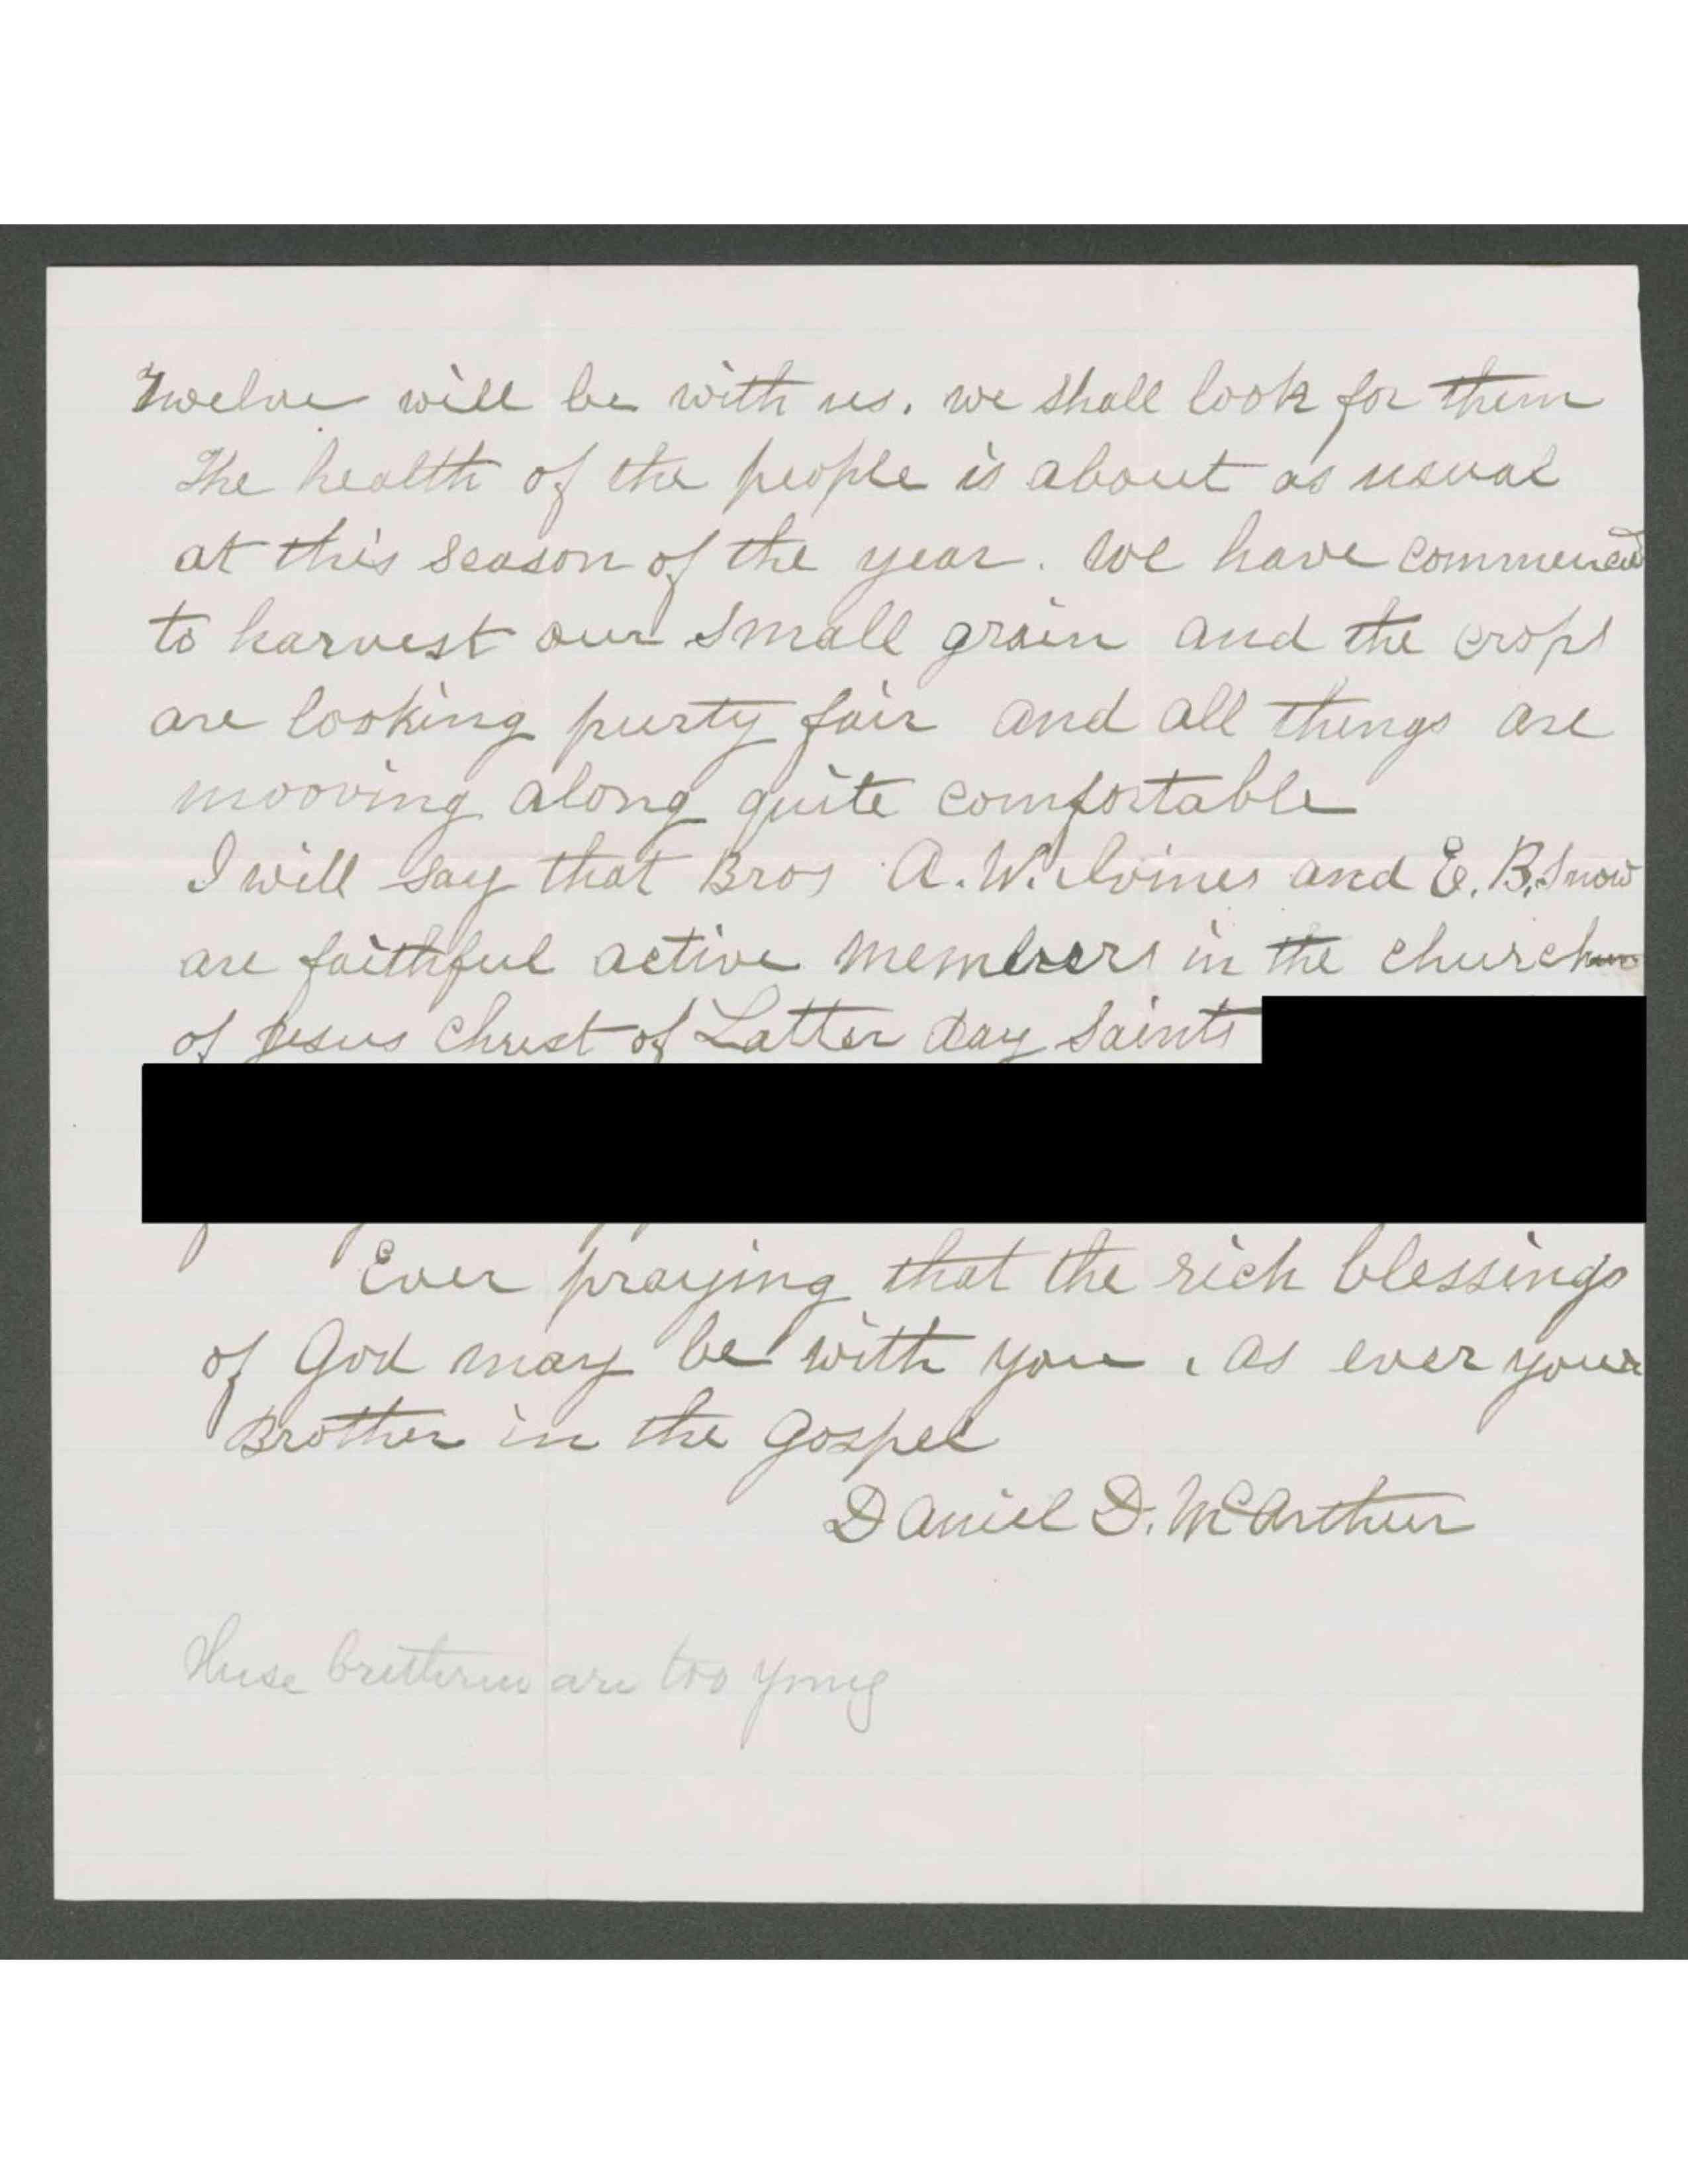 Twelve will be with us. we shall look for them
The health of the people is about as usual
at this season of the year. We have commenced
to harvest our small grain and the crops
are looking purty fair and all things are
mooving along quite comfortable
I will say that Bros A. W. Ivines and E. B. Snow
are faithful active members in the church
of Jesus Christ of Latter day Saints
Ever praying that the rich blessings
of God may be with you, as ever your
Brother in the Gospel
Daniel D. McArthur
These brethren are too young